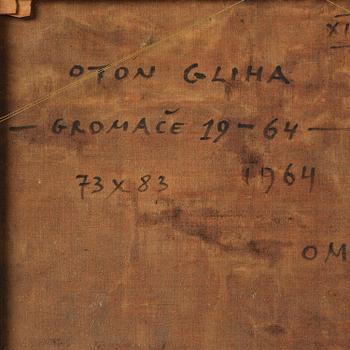 XI
OTON GLIHA
— GROMAČE 19-64 —
73 x 83 1964
OM